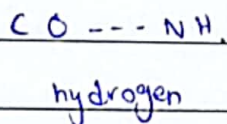 C O --- N H.
hydrogen